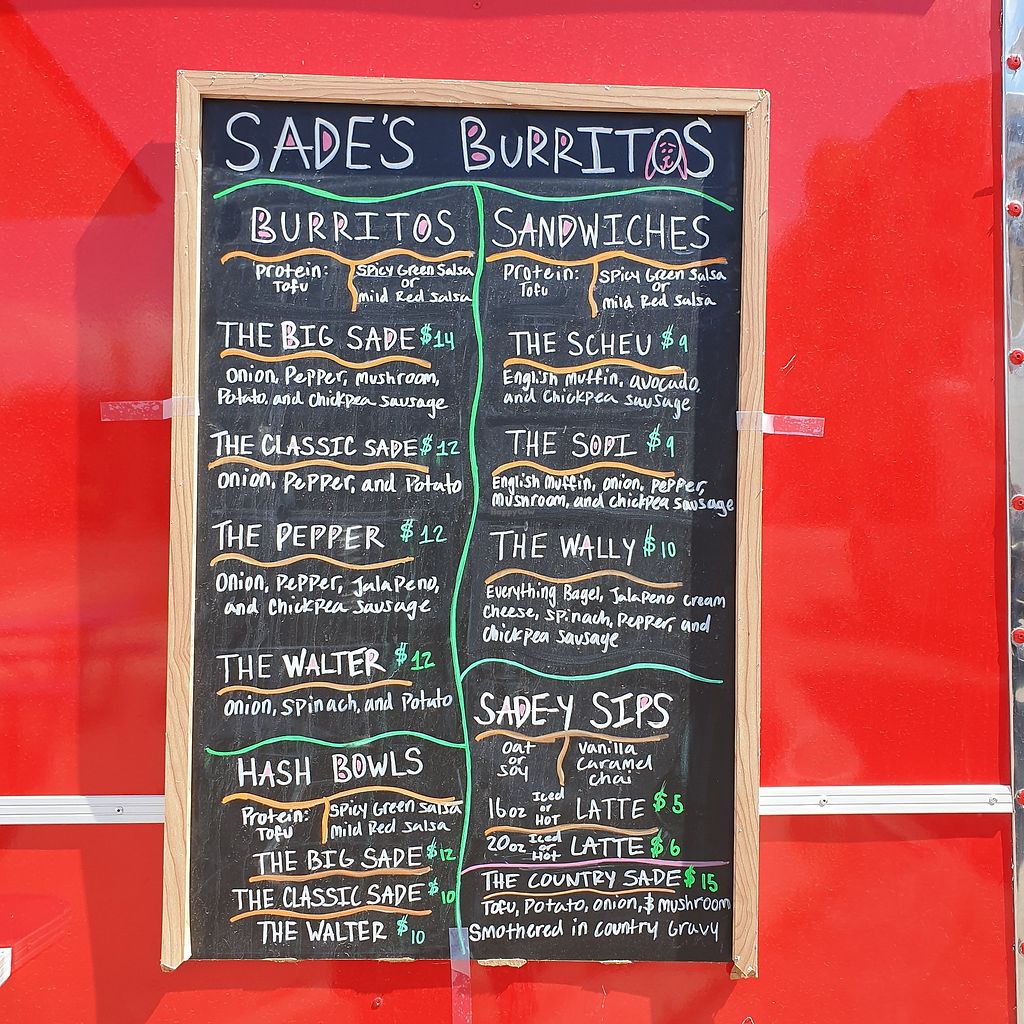 SADE'S BURRITOS
BURRITOS
Protein: Tofu
Spicy Green Salsa
or
mild Red Salsa
THE BIG SADE $14
Onion, Pepper, mushroom,
Potato, and chickpea sausage
THE CLASSIC SADE $12
Onion, Pepper, and Potato
THE PEPPER $12
Onion, Pepper, Jalapeno,
and Chickpea sausage
THE WALTER $12
Onion, Spinach, and Potato
HASH BOWLS
Protein: Tofu
Spicy Green Salsa
mild Red Salsa
THE BIG SADE $12
THE CLASSIC SADE $10
THE WALTER $10
SANDWICHES
Protein: Tofu
Spicy Green Salsa
or
mild Red Salsa
THE SCHEU $9
English muffin, avocado,
and Chickpea sausage
THE SODI $9
English muffin, onion, pepper,
mushroom, and chickpea sausage
THE WALLY $10
Everything Bagel, Jalapeno cream
cheese, spinach, pepper, and
chickpea sausage
SADE-Y SIPS
Oat
or
soy
Vanilla
Caramel
chai
16oz Iced or HOT LATTE $5
20oz Iced or Hot LATTE $6
THE COUNTRY SADE $15
Tofu, Potato, onion, & mushroom
Smothered in country Gravy